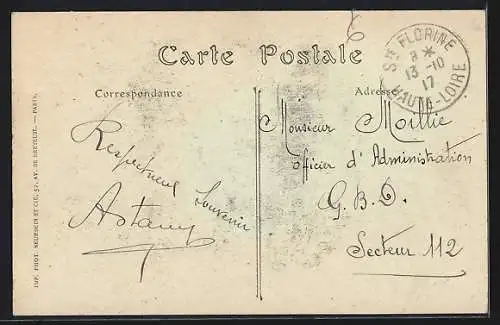 Carte Postale
Correspondance
Adresse
Ste FLORINE
8 *
13 -10
17
HAUTE-LOIRE
Respectueux
Souvenir
Monsieur Moillie
officier d'Administration
G.B.D.
Secteur 112
IMP. PHOT. NEURDEIN ET CIE, 52, AV. DE BRETEUIL. — PARIS.